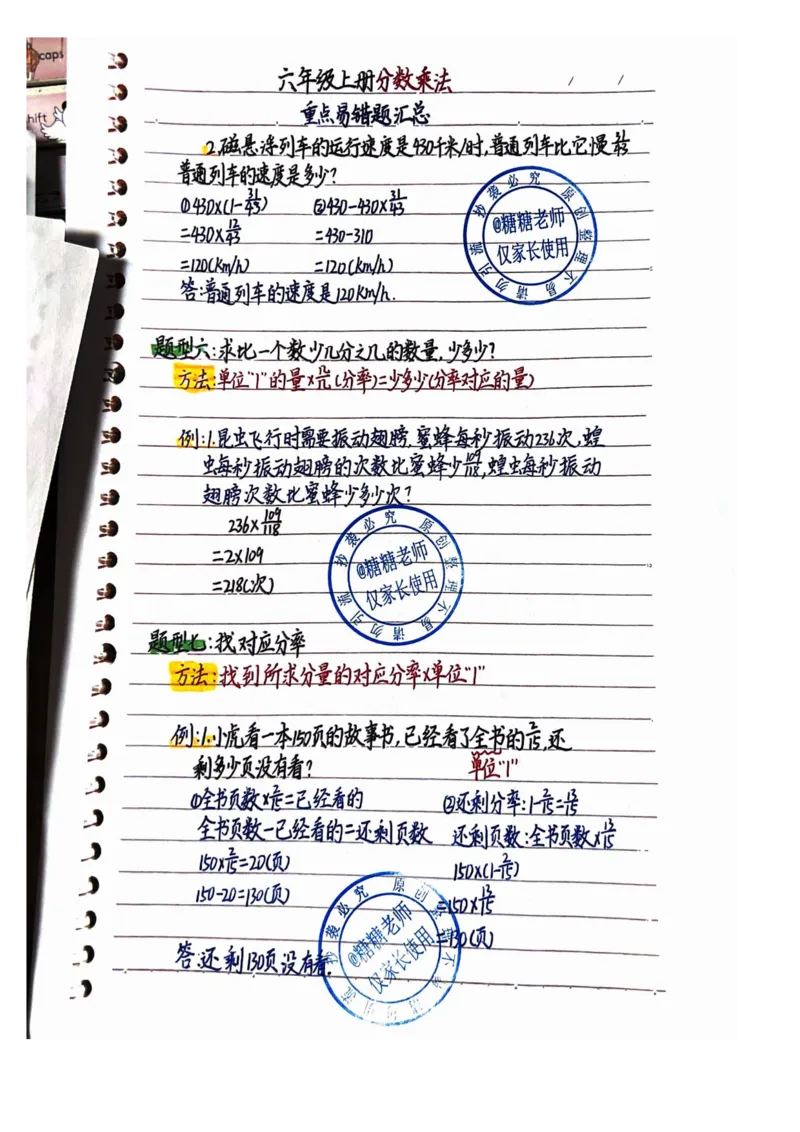 caps
hift
六年级上册分数乘法
重点易错题汇总
2.磁悬浮列车的运行速度是430千米/时,普通列车比它慢31/43
普通列车的速度是多少?
①430×(1-31/43) ②430-430×31/43
=430×12/43 =430-310
=120(km/h) =120(km/h)
答:普通列车的速度是120km/h.
题型六:求比一个数少几分之几的数量,少多少?
方法:单位"1"的量×n/m(分率)=少多少(分率对应的量)
例:1.昆虫飞行时需要振动翅膀,蜜蜂每秒振动236次,蝗
虫每秒振动翅膀的次数比蜜蜂少109/118,蝗虫每秒振动
翅膀次数比蜜蜂少多少次?
236×109/118
=2×109
=218(次)
题型七:找对应分率
方法:找到所求分量的对应分率×单位"1"
例:1.小虎看一本150页的故事书,已经看了全书的2/15,还
剩多少页没有看? 单位"1"
①全书页数×2/15=已经看的 ②还剩分率:1-2/15=13/15
全书页数-已经看的=还剩页数 还剩页数:全书页数×13/15
150×2/15=20(页) 150×(1-2/15)
150-20=130(页) =150×13/15
=130(页)
答:还剩130页没有看.
原创整理不易 请勿引流 抄袭必究
@糖糖老师
仅家长使用
原创整理不易 请勿引流 抄袭必究
@糖糖老师
仅家长使用
原创整理不易 请勿引流 抄袭必究
@糖糖老师
仅家长使用